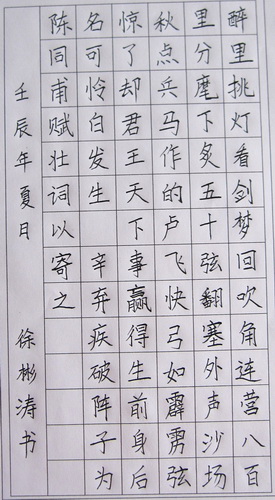 醉里挑灯看剑梦回吹角连营八百
里分麾下炙五十弦翻塞外声沙场
秋点兵马作的卢飞快弓如霹雳弦
惊了却君王天下事赢得生前身后
名可怜白发生 辛弃疾破阵子为
陈同甫赋壮词以寄之
壬辰年夏日 徐彬涛书